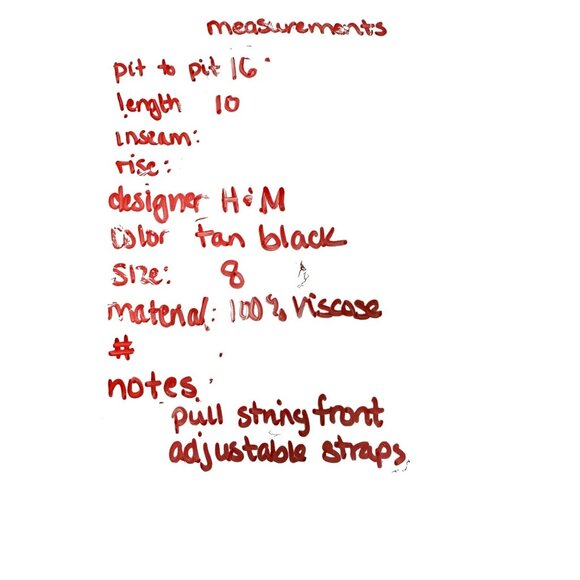 measurements
pit to pit 16
length 10
inseam:
rise:
designer H&M
color tan black
size: 8
material: 100% viscose
#
notes:
pull string front
adjustable straps